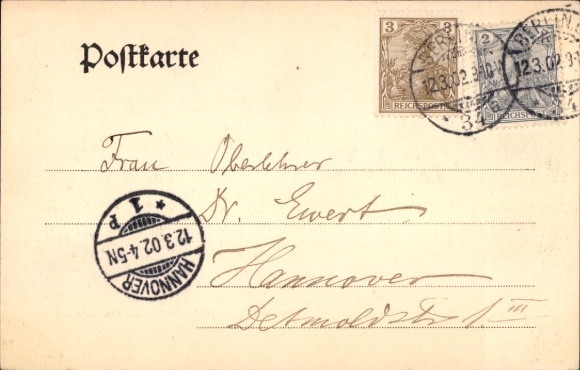 Postkarte
3
REICHSPOST
2
REICHSPOST
BERLIN
12.3.02.9-10V
34 a
BERLIN
12.3.02.9-1
34
Frau Oberlehrer
Dr. Ewert
Hannover
Detmoldstr. 1 III
HANNOVER
12.3.02.4-5N
* 1 P